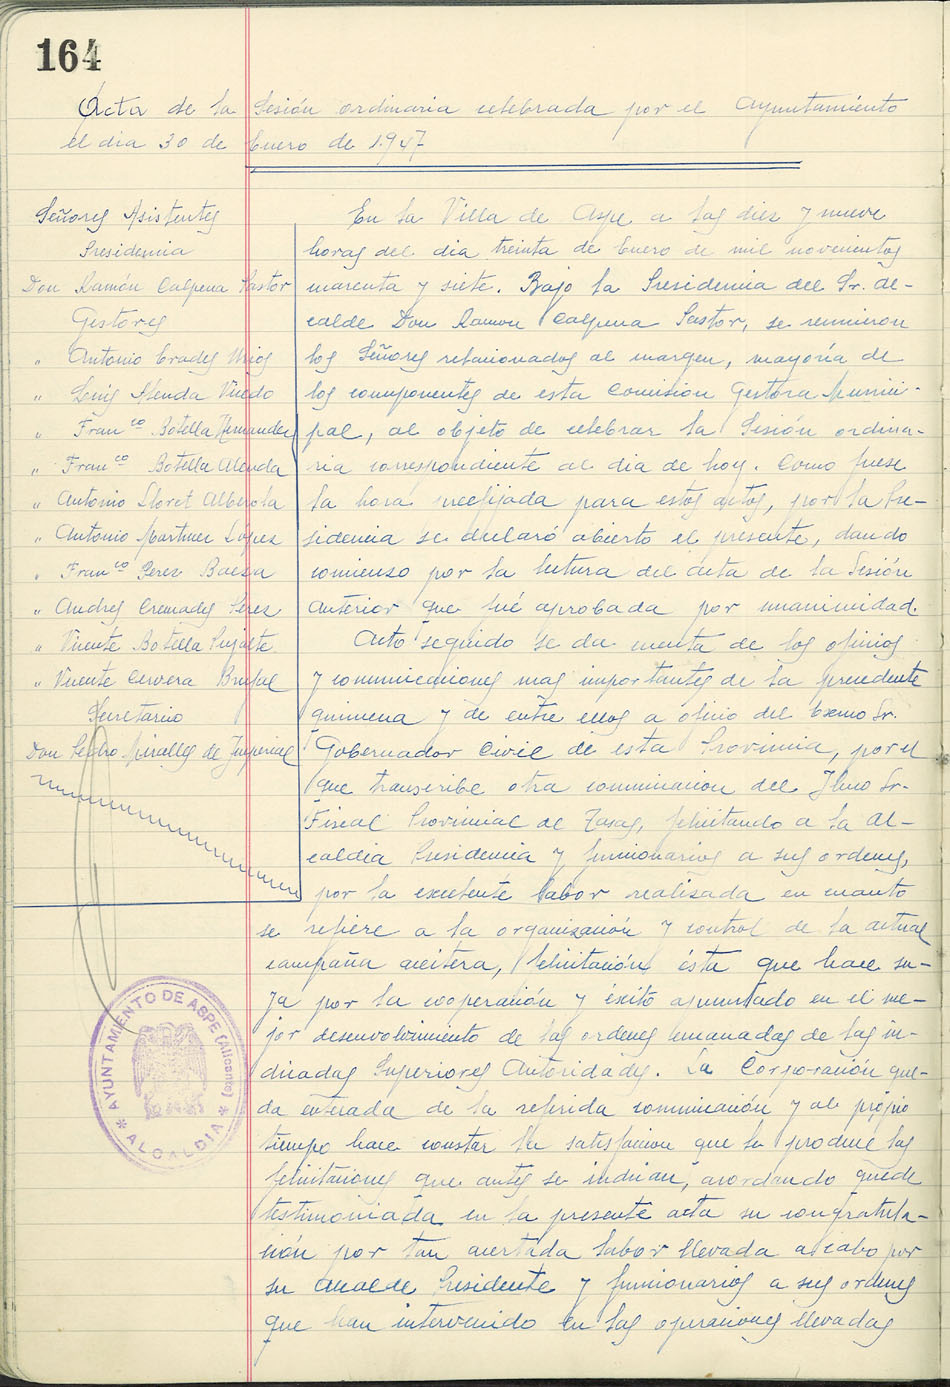 164
Acta de la Sesión ordinaria celebrada por el Ayuntamiento
el dia 30 de Enero de 1.947
Señores Asistentes
Presidencia
Don Ramón Calpena Pastor
Gestores
" Antonio Erades Mira
" Luis Alenda
" Fran.co Botella Hernandez
" Fran.co Botella Alenda
" Antonio Lloret Alberola
" Antonio Martinez López
" Fran.co Perez Baeza
" Andres Cremades Pérez
" Vicente Botella Pujalte
" Vicente Cervera
Secretario
Don Pedro Miralles de Imperial
En la Villa de Aspe a las diez y nueve
horas del dia treinta de Enero de mil novecientos
cuarenta y siete. Bajo la Presidencia del Sr. Al-
calde Don Ramon Calpena Pastor, se reunieron
los Señores relacionados al margen, mayoría de
los componentes de esta Comision Gestora Munici-
pal, al objeto de celebrar la Sesión ordina-
ria correspondiente al dia de hoy. Como fuese
la hora prefijada para estos actos, por la Pre-
sidencia se declaró abierto el presente, dando
comienzo por la lectura del acta de la Sesión
anterior que fué aprobada por unanimidad.
Acto seguido se da cuenta de los oficios
y comunicaciones mas importantes de la precedente
quincena y de entre ellos a oficio del Excmo Sr.
Gobernador Civil de esta Provincia, por el
que transcribe otra comunicacion del Ilmo Sr.
Fiscal Provincial de Tasas, felicitando a la Al-
caldia Presidencia y funcionarios a sus ordenes,
por la excelente labor realizada en cuanto
se refiere a la organización y control de la actual
campaña aceitera, felicitación ésta que hace su-
ya por la cooperación y éxito apuntado en el me-
jor desenvolvimiento de las ordenes emanadas de las in-
dicadas Superiores Autoridades. La Corporación que-
da enterada de la referida comunicación y al própio
tiempo hace constar la satisfacion que le produce las
felicitaciones que antes se indican, acordando quede
testimoniada en la presente acta su congratula-
ción por tan acertada labor llevada a cabo por
su Alcalde Presidente y funcionarios a sus ordenes
que han intervenido en las operaciones llevadas
AYUNTAMIENTO DE ASPE (Alicante)
* ALCALDIA *